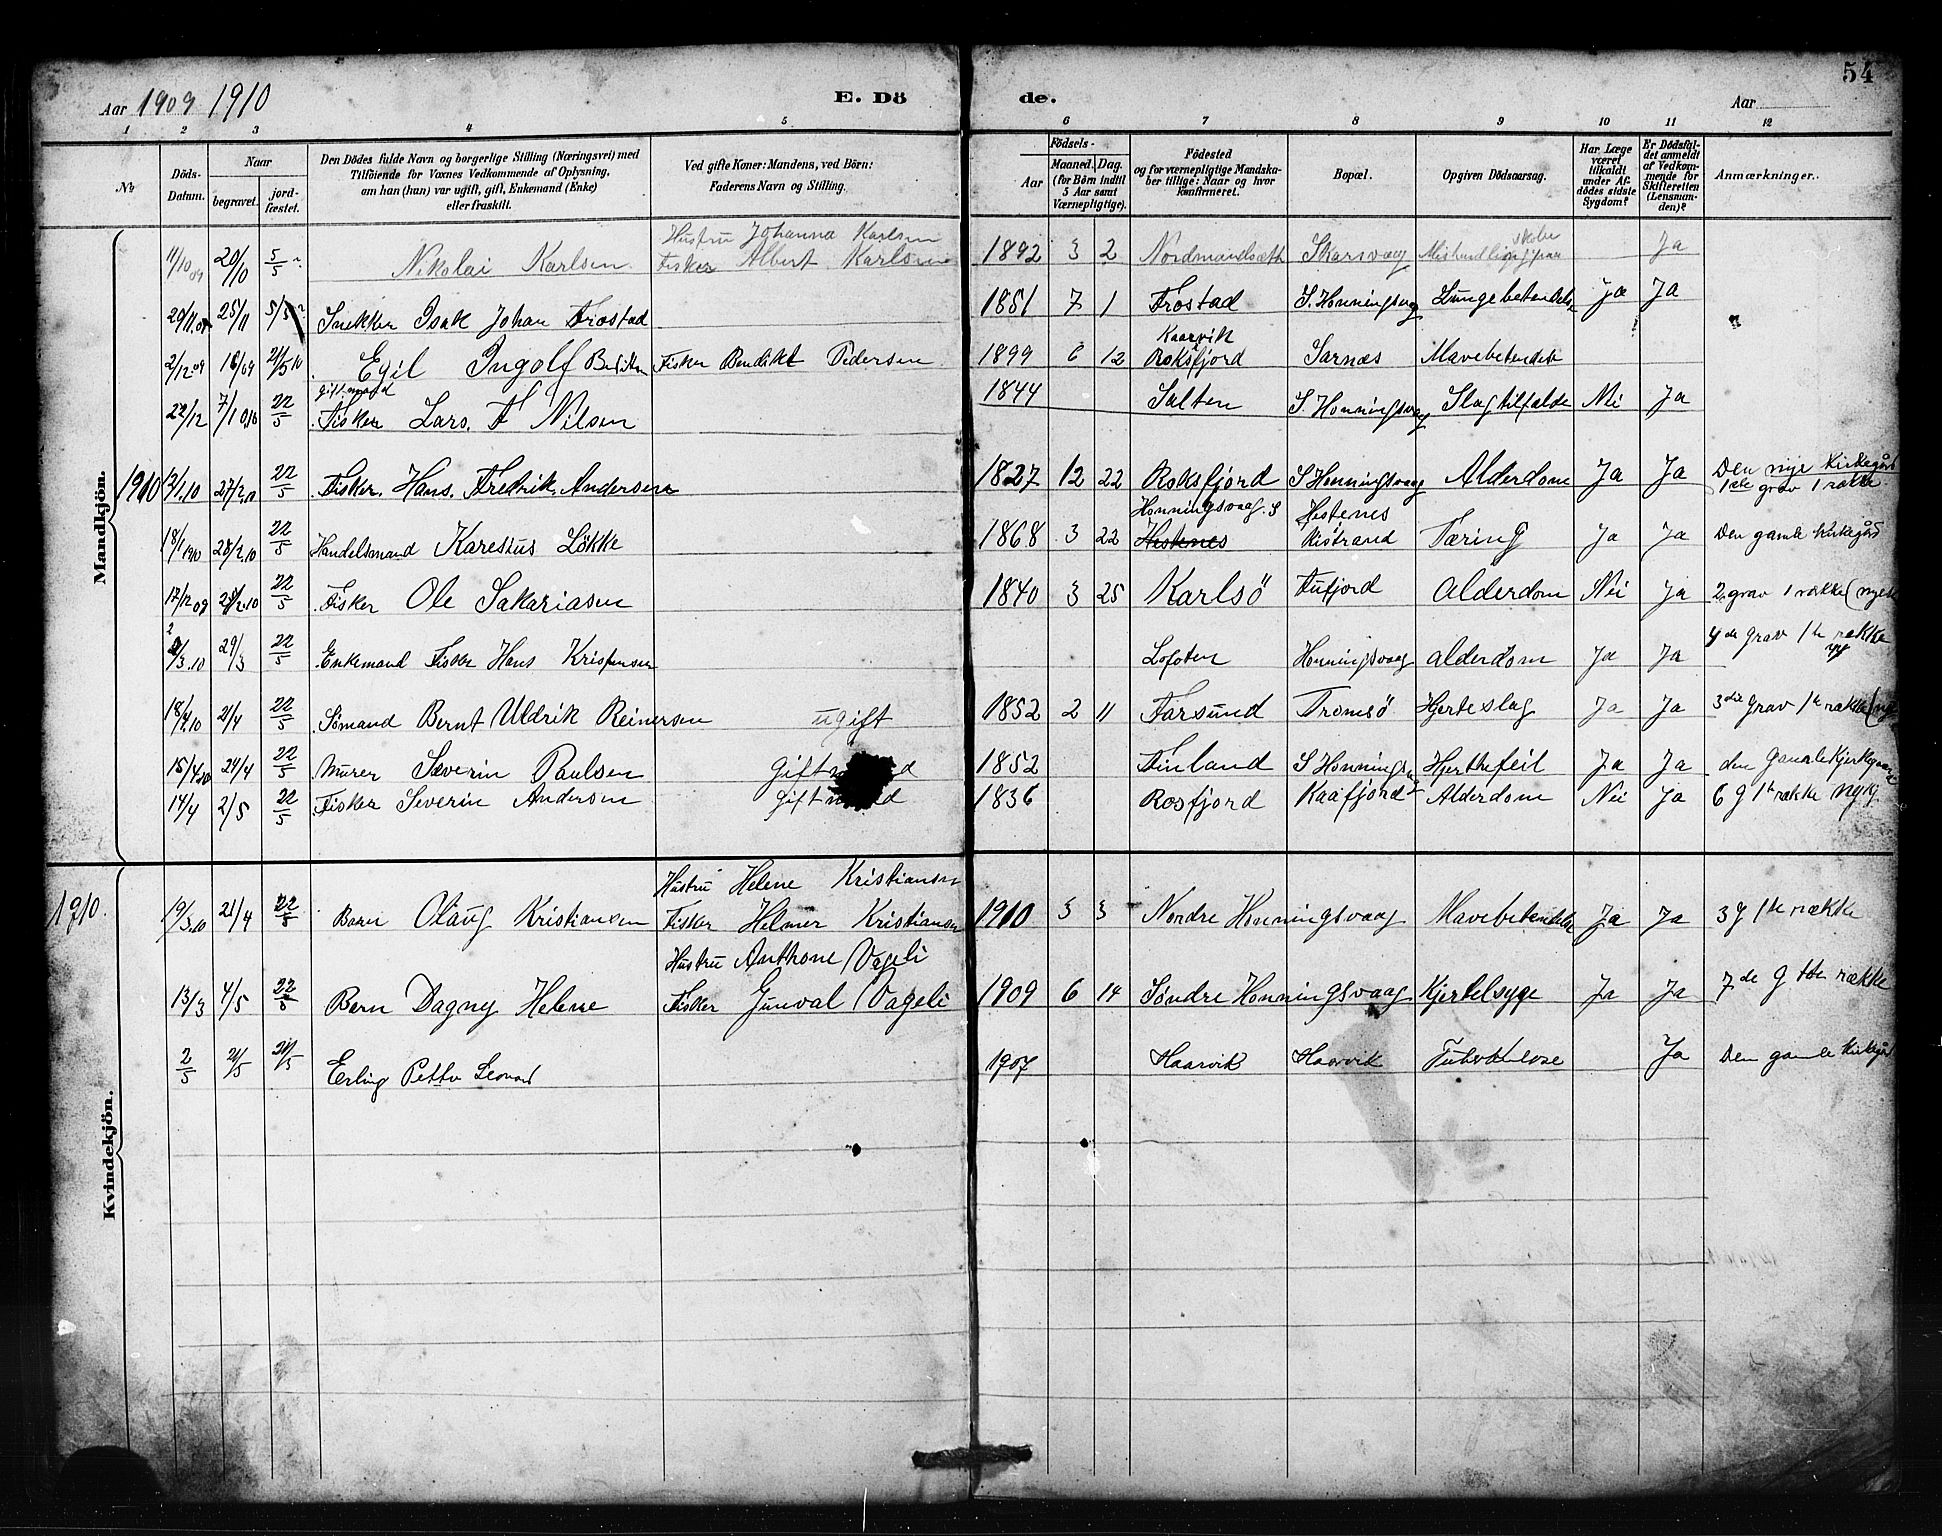 54
Aar 1909 1910 E. Dö de. Aar
1 2 3 4 5 6 7 8 9 10 11 12
No
Döds-Datum.
Naar begravet. jordfæstet.
Den Dödes fulde Navn og borgerlige Stilling (Næringsvei) med Tilföiende for Voxnes Vedkommende af Oplysning, om han (hun) var ugift, gift, Enkemand (Enke) eller fraskilt.
Ved gifte Koner: Mandens, ved Börn: Faderens Navn og Stilling.
Födsels- Aar Maaned. Dag. (for Börn indtil 5 Aar samt Værnepligtige).
Födested og for værnepligtige Mandskaber tillige: Naar og hvor konfirmeret.
Bopæl.
Opgiven Dödsaarsag.
Har Læge været tilkaldt under Afdödes sidste Sygdom?
Er Dödsfaldet anmeldt af Vedkommende for Skifteretten (Lensmanden)?
Anmærkninger.
Mandkjön.
Hustru Johanna Karlsen
11/10 09 20/10 5/5 Nikolai Karlsen Fisker Albert Karlsen 1892 3 2 Nordmandsæth Skarsvaag Ja
25/11 Snekker Isak Johan Frostad 1851 7 1 Frostad S. Honningsvaag Lungebetendelse Ja Ja
Kaarvik
2/12 09 16/09 21/5 10 Egil Ingolf Fisker Bendikt Pedersen 1899 6 12 Roksfjord Sarnæs Mavebetendels
Gift mand
22/12 7/1 22/5 Fisker Lars. F Nilsen 1844 Salten S. Honningsvaag Slagtilfælde Nei Ja
1910 27/2 10 22/5 Fisker. Hans. Fredrik. Andersen 1827 12 22 Roksfjord S Honningsvaag Alderdom Ja Ja Den nye Kirkegård
1ste grav 1 række
Honningsvaag. S Hestenes
18/1 1910 28/2.10 22/5 Handelsmand Karesius Lökke 1868 3 22 Hestenes Ristrand Tæring Ja Ja Den gamle Kirkegård
17/12 09 22/5 Fisker Ole Sakariasen 1840 3 25 Karlsö Tufjord Alderdom Nei Ja 2 grav 1 række
29/3 22/5 Enkemand Fisker Hans Kristensen Lofoten Honningsvaag Alderdom Ja Ja 4de Grav 1te række
ny
18/4 10 21/4 22/5 Sömand Bernt Uldrik Reinersen ugift 1852 2 11 Farsund Tromsö Hjerteslag Ja Ja 3die Grav 1te række
15/4 10 24/4 22/5 Murer Severin Paulsen 1852 Finland S Honningsvaag Hjertefeil Ja Ja den Gamle Kjerkegaard
14/4 2/5 22/5 Fisker Severin Andersen 1836 Rosfjord Kaafjord Alderdom Nei Ja 6 g 1te række
Kvindekjön.
Hustru Helene Kristiansen
1910. 19/3.10 21/4 22/5 Barn Olaug Kristiansen Fisker Helmer Kristiansen 1910 3 3 Nordre Honningsvaag Mavebetendelse Ja Ja 3 g 1te række
Hustru Anthone Vageli
13/3 4/5 22/5 Barn Dagny Helene Fisker Gunval Vageli 1909 6 14 Søndre Honningsvaag Kjertelsyge Ja Ja 7de G 1te række
2/5 21/5 Erling Petter Leonard 1907 Kaarvik Kaarvik Tuberkulose Ja Den gamle Kirkegård